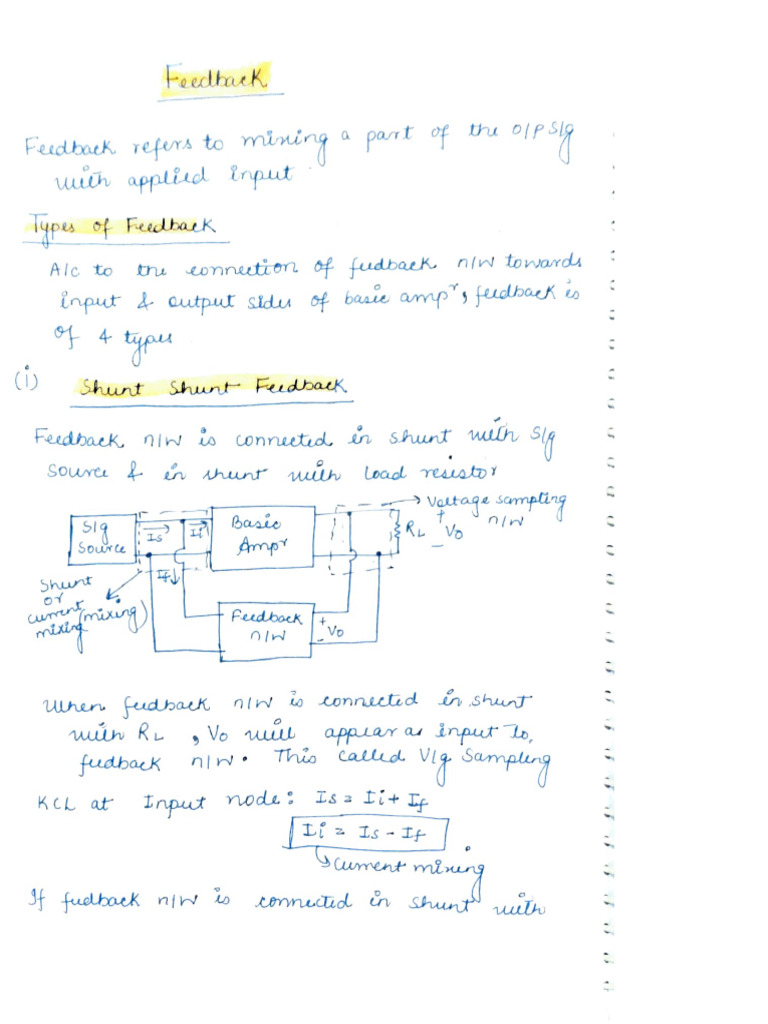 Feedback
Feedback refers to mixing a part of the O/P S/g
with applied input
Types of Feedback
A/c to the connection of feedback n/w towards
input & output sides of basic ampr, feedback is
of 4 types
(i) Shunt Shunt Feedback
Feedback n/w is connected in shunt with S/g
source & in shunt with load resistor
Voltage sampling
n/w
S/g
Source
Is
Ii
Basic
Ampr
RL
+
Vo
-
If
Shunt
or
current (mixing)
mixing
Feedback
n/w
+
Vo
-
When feedback n/w is connected in shunt
with RL, Vo will appear as input to
feedback n/w. This called V/g Sampling
KCL at Input node: Is = Ii + If
Ii = Is - If
current mixing
If feedback n/w is connected in shunt with